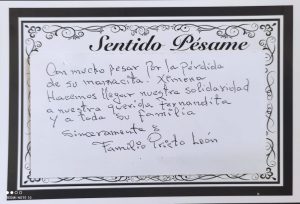 Sentido Pésame
Con mucho pesar por la pérdida
de su mamacita. Ximena
Hacemos llegar nuestra solidaridad
a nuestra querida Fernandita
y a toda su familia
Sinceramente
Familia Prieto León
REDMI NOTE 10